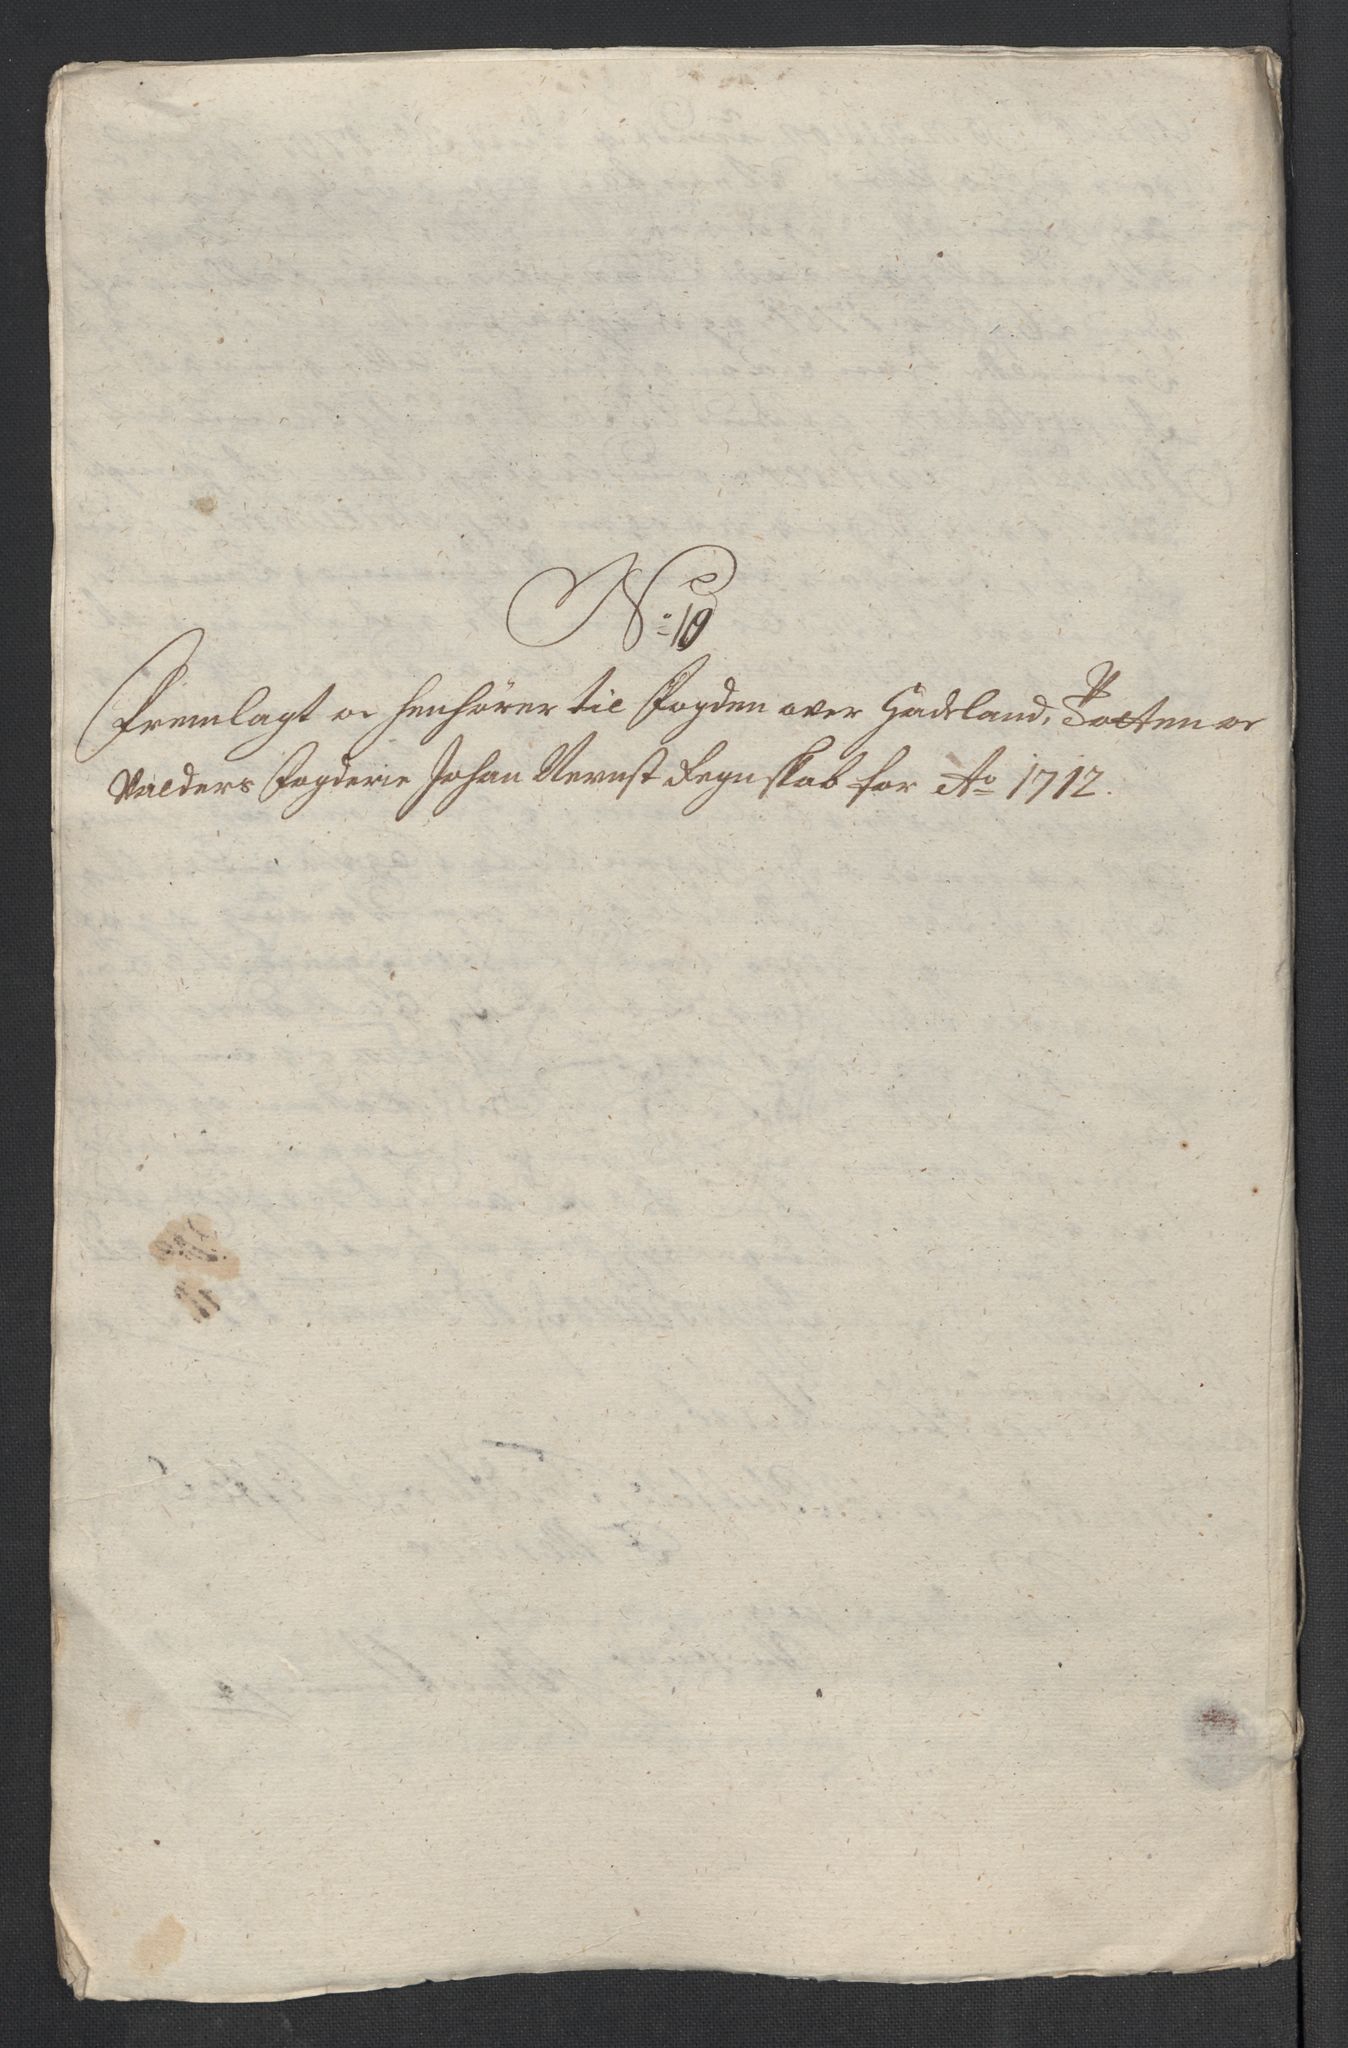 No: 19
Fremlagt oc henhörer til Fogden over Hadeland, Totten oc
Valders Fogderie Johan Wernst Regnskab for Ao 1712.